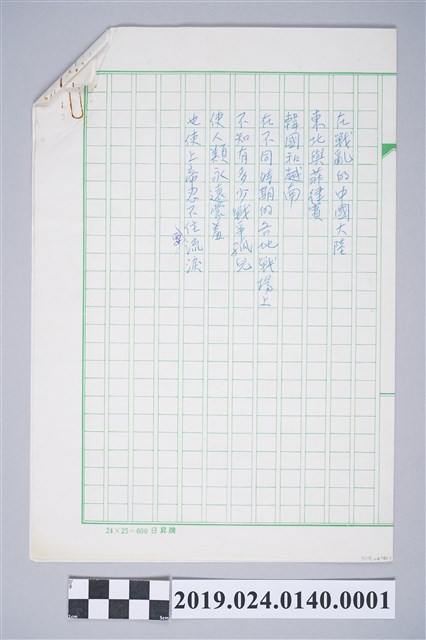 在戰亂的中國大陸
東北與菲律賓
韓國和越南
在不同時期的各地戰場上
不知有多少戰爭孤兒
使人類永遠蒙羞
也使上帝忍不住流淚
24×25=600 日昇牌
2019.024.0140.0001